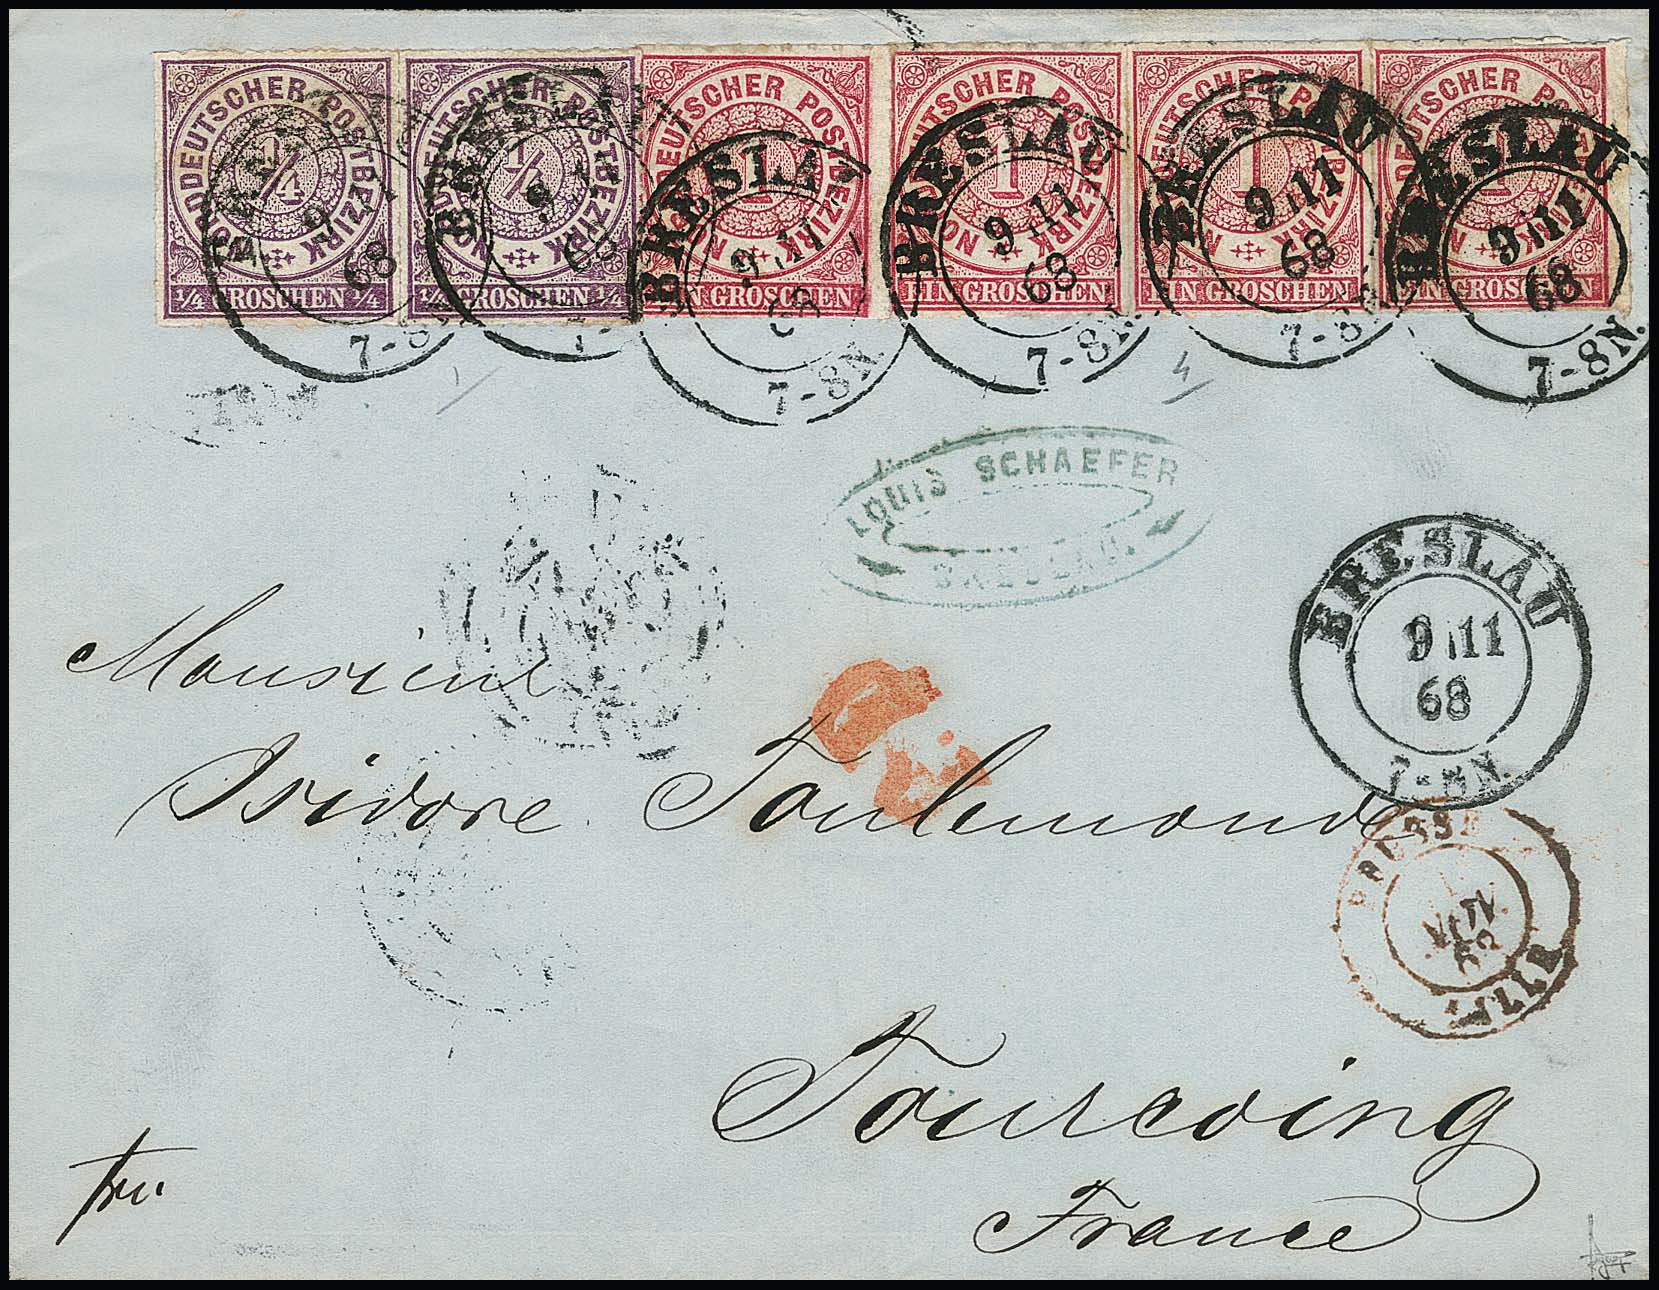 NORDDEUTSCHER POSTBEZIRK
1/4
1/4 GROSCHEN 1/4
NORDDEUTSCHER POSTBEZIRK
1/4
1/4 GROSCHEN 1/4
NORDDEUTSCHER POSTBEZIRK
1
EIN GROSCHEN
NORDDEUTSCHER POSTBEZIRK
1
EIN GROSCHEN.
NORDDEUTSCHER POSTBEZIRK
1
EIN GROSCHEN.
NORDDEUTSCHER POSTBEZIRK
1
EIN GROSCHEN
9
68
7-8
9
68
7-
BRESLA
9 11
68
7-8N.
BRESLAU
9 11
68
7-8N.
BRESLAU
9 11
68
7-8N
BRESLAU
9 11
68
7-8N.
4
LOUIS SCHAEFER
BRESLAU.
BRESLAU
9 11
68
7-8N.
Monsieur
Isidore Toulemonde
PRUSSE
LILLE
Tourcoing
France